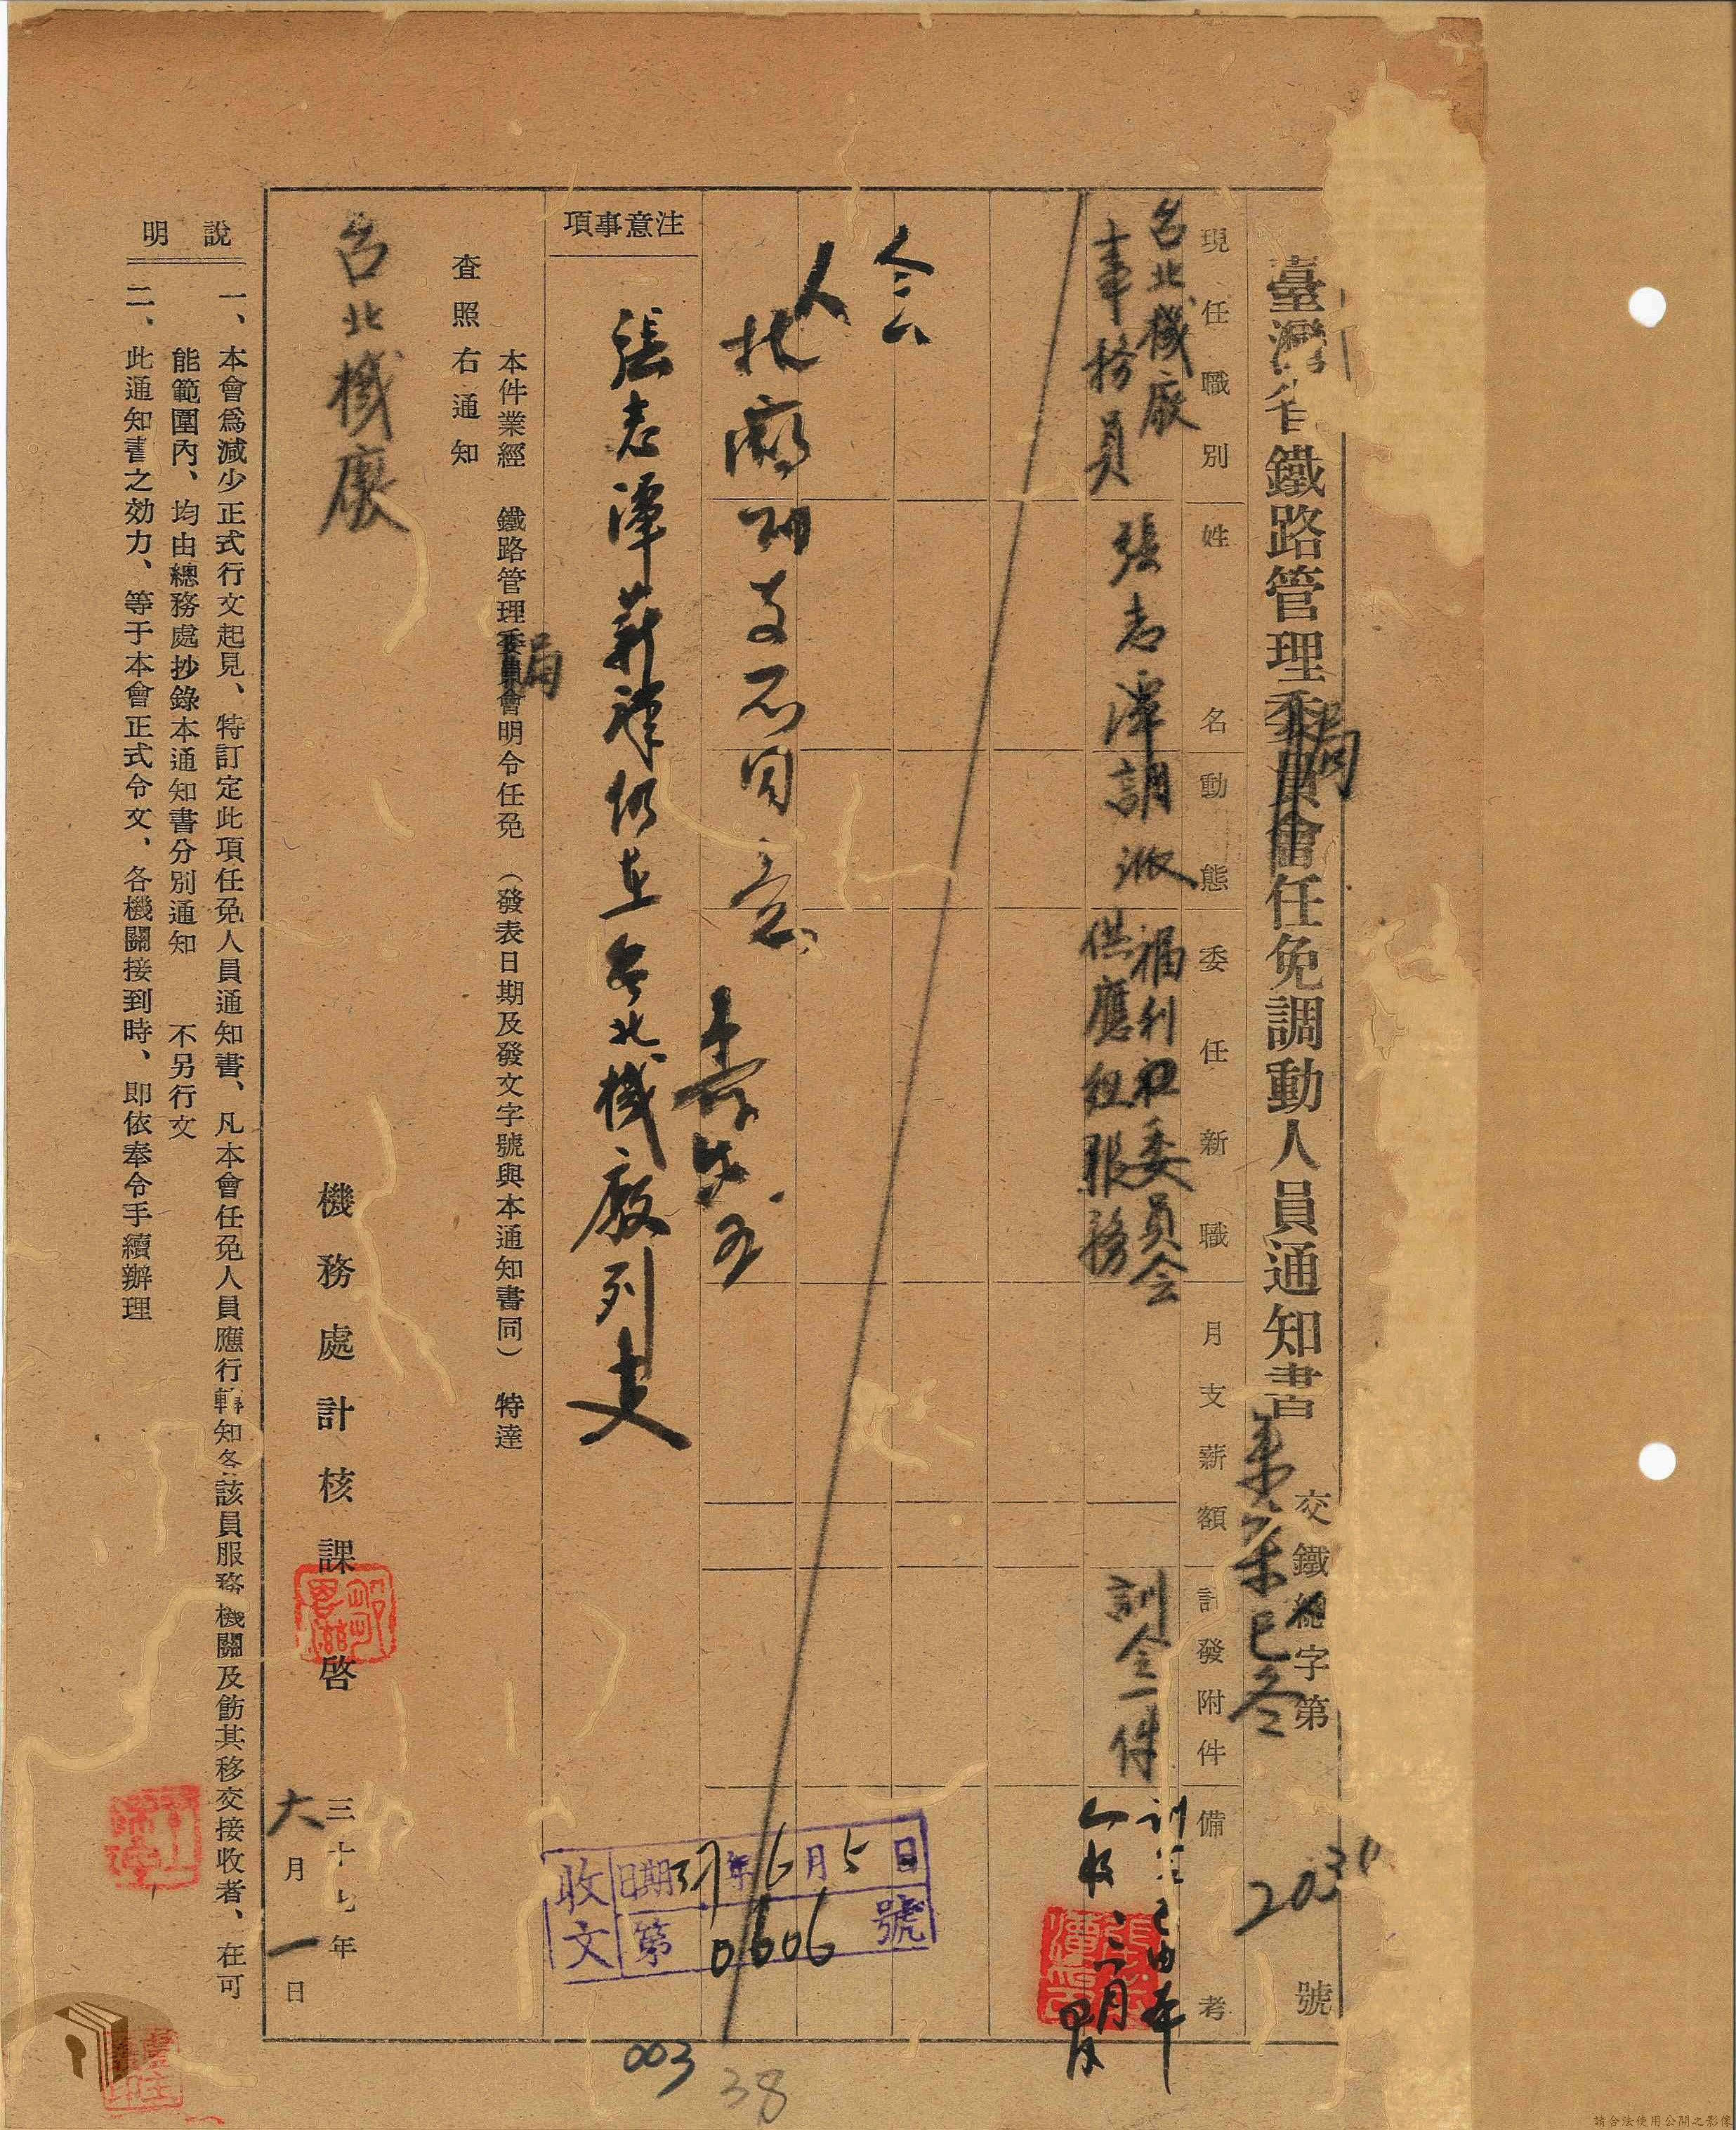 臺灣省鐵路管理委員會任免調動人員通知書
局
交鐵總字第 號
2031
現任職別
姓名
動態
委任新職
月支薪額
計發附件
備考
台北機廠
事務員
張志潭
調派
福利社委員会
供應組服務
訓令一件
本人
本廠
不同意
注意事項
張志潭薪津仍在台北機廠列支
本件業經 鐵路管理委員會明令任免 (發表日期及發文字號與本通知書同) 特達
局
查照右通知
台北機廠
機務處計核課啓
三十七年
六月一日
說明
一、本會爲減少正式行文起見、特訂定此項任免人員通知書、凡本會任免人員應行轉知各該員服務機關及飭其移交接收者、在可
能範圍內、均由總務處抄錄本通知書分別通知 不另行文
二、此通知書之効力、等于本會正式令文、各機關接到時、即依奉令手續辦理
收文
日期37年6月5日
第0606號
003
38
請合法使用公開之影像